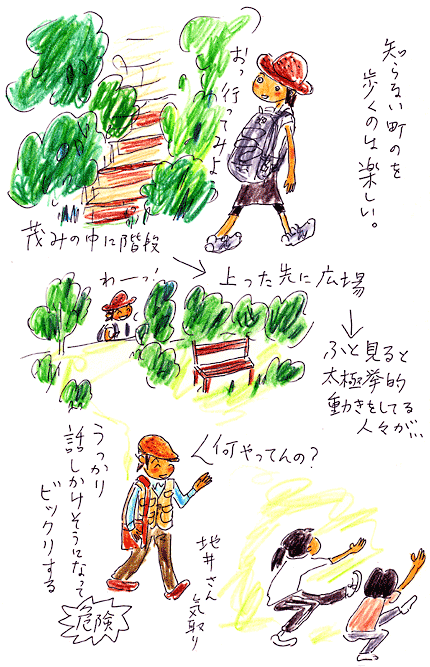 知らない町のを
歩くのは楽しい。
おっ
行ってみよ
茂みの中に階段
わーっ!
上った先に広場
ふと見ると
太極拳的
動きをしてる
人々が…
何やってんの?
うっかり
話しかけそうになって
ビックリする
危険
地井さん
気取り